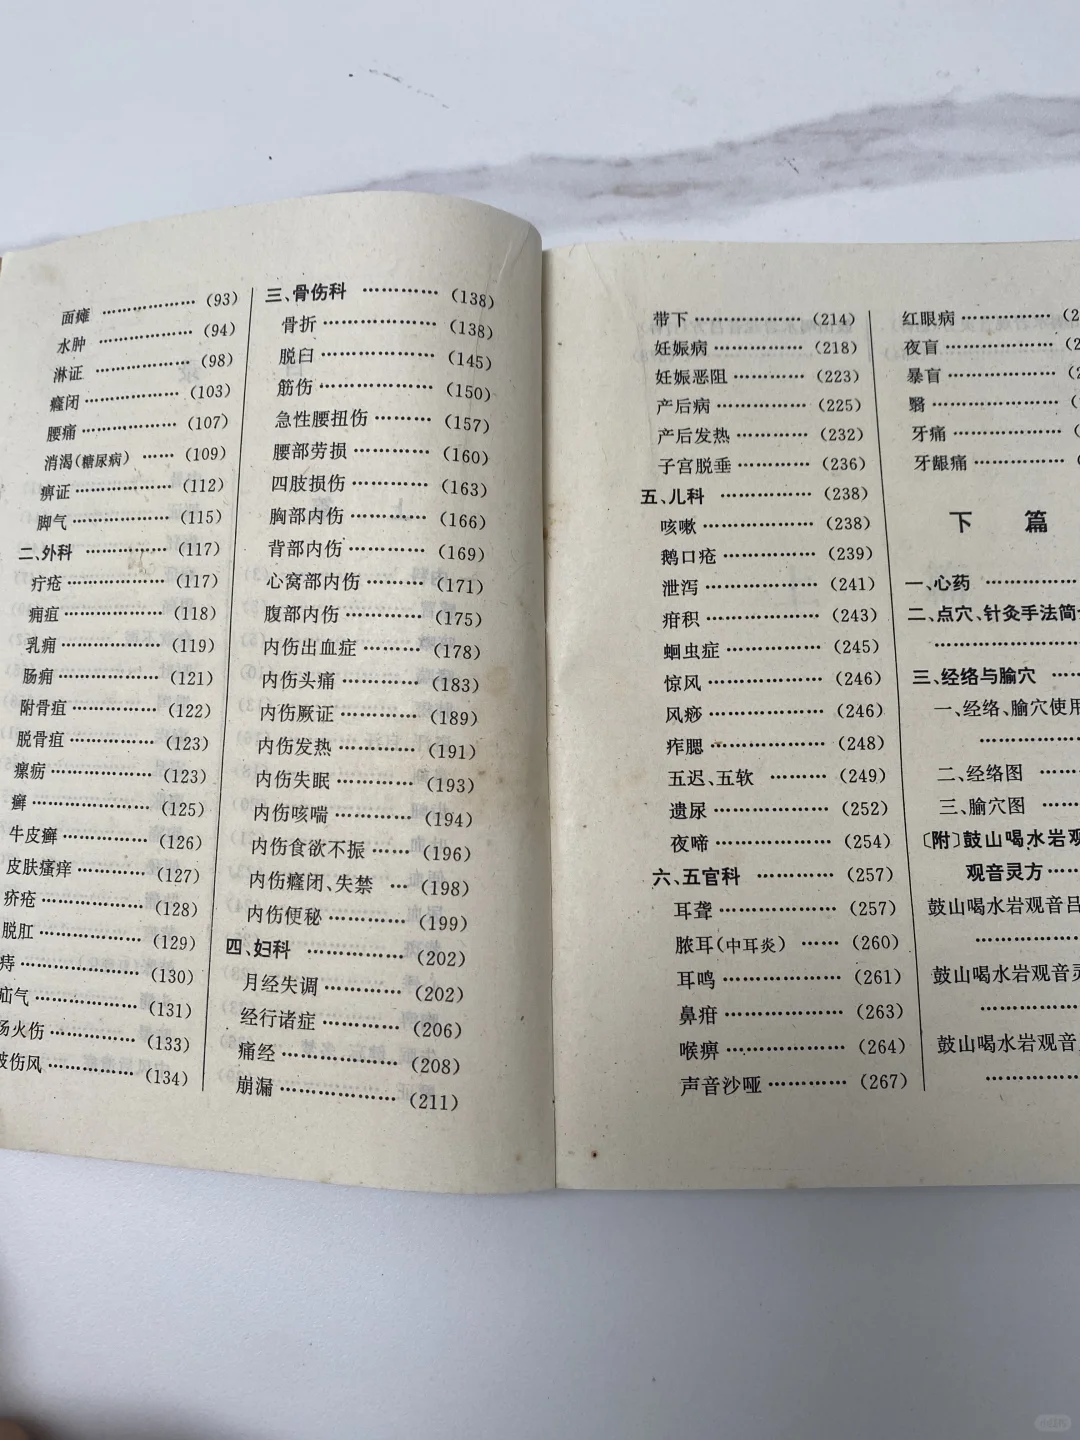 面瘫 ……………… (93)
水肿 ……………… (94)
淋证 ……………… (98)
癃闭 ……………… (103)
腰痛 ……………… (107)
消渴(糖尿病) …… (109)
痹证 ……………… (112)
脚气 ……………… (115)
二、外科 ………… (117)
疔疮 ……………… (117)
痈疽 ……………… (118)
乳痈 ……………… (119)
肠痈 ……………… (121)
附骨疽 …………… (122)
脱骨疽 …………… (123)
瘰疬 ……………… (123)
癣 ………………… (125)
牛皮癣 …………… (126)
皮肤瘙痒 ………… (127)
疥疮 ……………… (128)
脱肛 ……………… (129)
痔 ………………… (130)
疝气 ……………… (131)
汤火伤 …………… (133)
破伤风 …………… (134)
三、骨伤科 ………… (138)
骨折 ……………… (138)
脱臼 ……………… (145)
筋伤 ……………… (150)
急性腰扭伤 ……… (157)
腰部劳损 ………… (160)
四肢损伤 ………… (163)
胸部内伤 ………… (166)
背部内伤 ………… (169)
心窝部内伤 ……… (171)
腹部内伤 ………… (175)
内伤出血症 ……… (178)
内伤头痛 ………… (183)
内伤厥证 ………… (189)
内伤发热 ………… (191)
内伤失眠 ………… (193)
内伤咳喘 ………… (194)
内伤食欲不振 …… (196)
内伤癃闭、失禁 … (198)
内伤便秘 ………… (199)
四、妇科 ………… (202)
月经失调 ………… (202)
经行诸症 ………… (206)
痛经 ……………… (208)
崩漏 ……………… (211)
带下 ……………… (214)
妊娠病 …………… (218)
妊娠恶阻 ………… (223)
产后病 …………… (225)
产后发热 ………… (232)
子宫脱垂 ………… (236)
五、儿科 ………… (238)
咳嗽 ……………… (238)
鹅口疮 …………… (239)
泄泻 ……………… (241)
疳积 ……………… (243)
蛔虫症 …………… (245)
惊风 ……………… (246)
风痧 ……………… (246)
痄腮 ……………… (248)
五迟、五软 ……… (249)
遗尿 ……………… (252)
夜啼 ……………… (254)
六、五官科 ………… (257)
耳聋 ……………… (257)
脓耳(中耳炎) …… (260)
耳鸣 ……………… (261)
鼻疳 ……………… (263)
喉痹 ……………… (264)
声音沙哑 ………… (267)
红眼病 …………… (2
夜盲 ……………… (2
暴盲 ……………… (2
翳 ………………… (
牙痛 ……………… (
牙龈痛 …………… (
下 篇
一、心药 …………
二、点穴、针灸手法简
………………
三、经络与腧穴 ……
一、经络、腧穴使用
…………
二、经络图 ……
三、腧穴图 ……
〔附〕鼓山喝水岩观
观音灵方 ……
鼓山喝水岩观音吕
…………
鼓山喝水岩观音灵
…………
鼓山喝水岩观音
…………